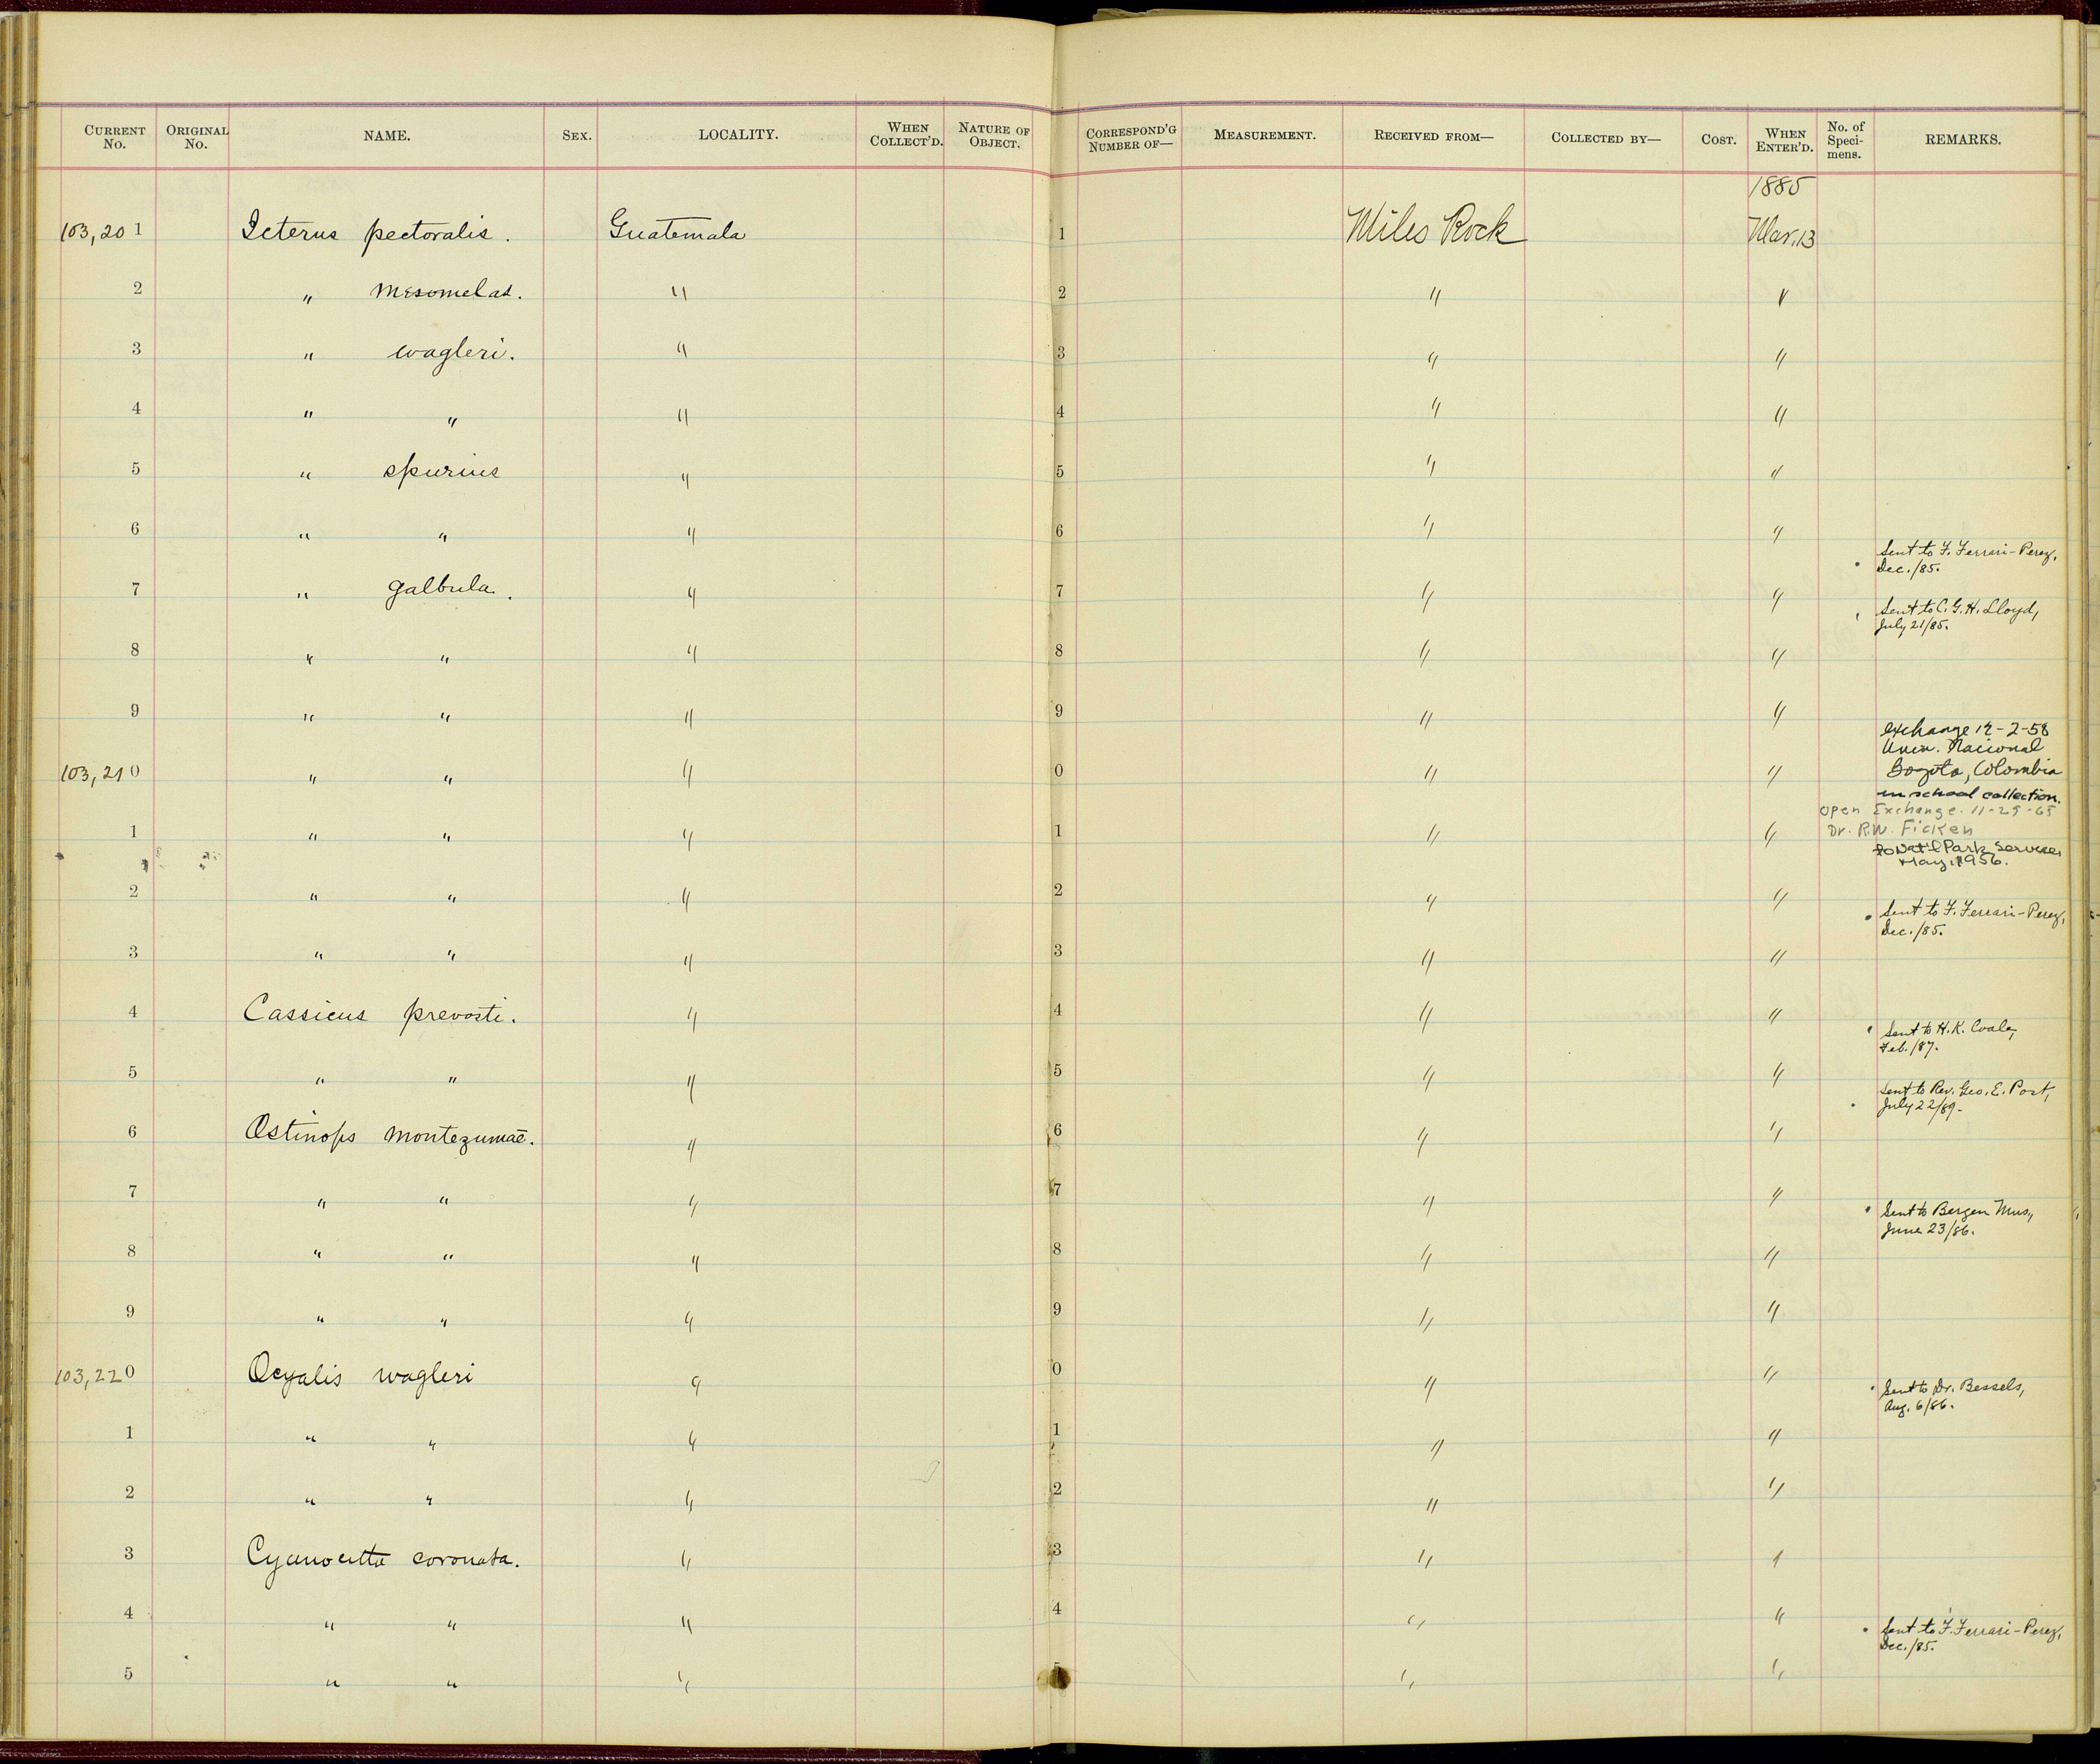 CURRENT No. ORIGINAL No. NAME. SEX. LOCALITY. WHEN COLLECT'D. NATURE OF OBJECT. CORRESPOND'G NUMBER OF— MEASUREMENT. RECEIVED FROM— COLLECTED BY— COST. WHEN ENTER'D. No. of Speci-mens. REMARKS.
1885
103,201 Icterus pectoralis. Guatemala 1 Miles Rock Mar. 13
2 " mesomelas. " 2 " "
3 " wagleri. " 3 " "
4 " " " 4 " "
5 " spurius " 5 " "
6 " " " 6 " "
Sent to F. Ferrari-Perez,
Dec./85.
7 " galbula. " 7 " "
Sent to C. G. H. Lloyd,
July 21/85.
8 " " " 8 " "
9 " " " 9 " "
exchange 12-2-58
Univ. Nacional
103,210 " " " 0 " " Bogota, Colombia
in school collection.
Open Exchange 11-29-65
1 " " " 1 " " Dr. R.W. Ficken
to Nat'l Park Service,
May, 1956.
2 " " " 2 " "
Sent to F. Ferrari-Perez,
Dec./85.
3 " " " 3 " "
4 Cassicus prevosti. " 4 " "
Sent to H. K. Coale,
Feb./87.
5 " " " 5 " "
Sent to Rev. Geo. E. Post,
July 22/89.
6 Ostinops montezumae. " 6 " "
7 " " " 7 " "
Sent to Bergen Mus.,
June 23/86.
8 " " " 8 " "
9 " " " 9 " "
103,220 Ocyalis wagleri " 0 " "
Sent to Dr. Bessels,
Aug. 6/86.
1 " " " 1 " "
2 " " " 2 " "
3 Cyanocitta coronata. " 3 " "
4 " " " 4 " "
Sent to F. Ferrari-Perez,
Dec./85.
5 " " " 5 " "